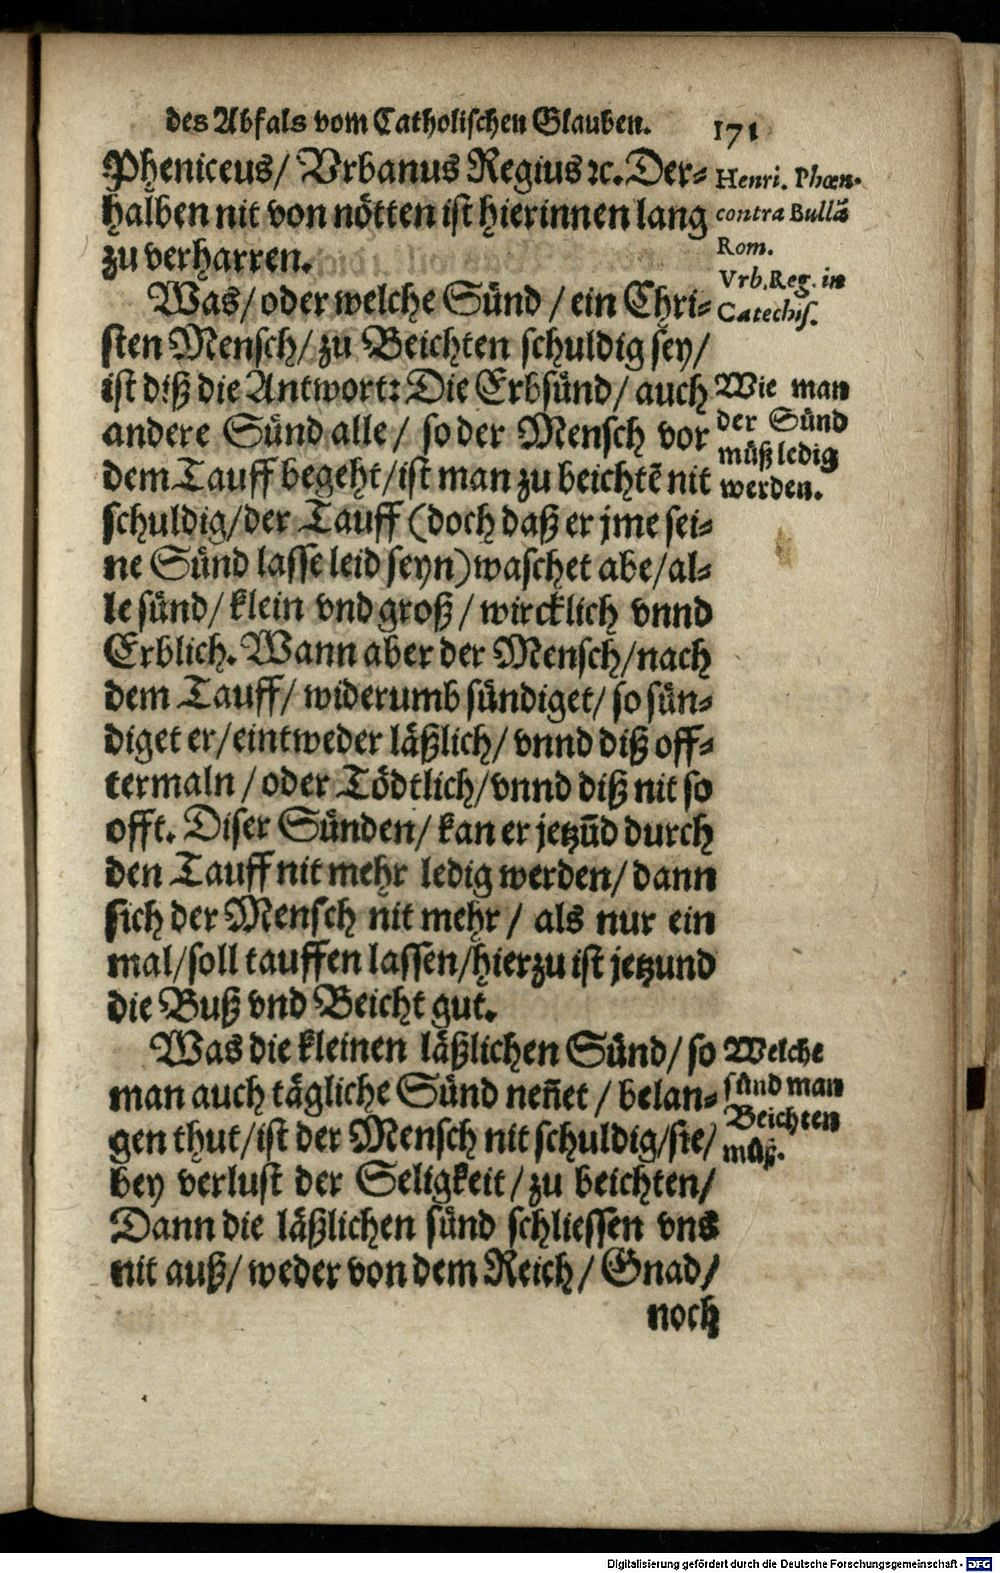 des Abfals vom Catholischen Glauben. 171
Pheniceus/ Vrbanus Regius ꝛc. Der⸗
halben nit von nötten ist hierinnen lang
zu verharren.
Henri. Phœn.
contra Bullã
Rom.
Vrb. Reg. in
Catechis.
Was/ oder welche Sünd / ein Chri⸗
sten Mensch/ zu Beichten schuldig sey/
ist diß die Antwort: Die Erbsünd/ auch
andere Sünd alle / so der Mensch vor
dem Tauff begeht/ ist man zu beichtẽ nit
schuldig/ der Tauff (doch daß er jme sei⸗
ne Sünd lasse leid seyn) waschet abe/ al⸗
le sünd/ klein vnd groß / wircklich vnnd
Erblich. Wann aber der Mensch/ nach
dem Tauff/ widerumb sündiget/ so sün⸗
diget er/ eintweder läßlich/ vnnd diß off⸗
termaln / oder Tödtlich/ vnnd diß nit so
offt. Diser Sünden/ kan er jetzũd durch
den Tauff nit mehr ledig werden/ dann
sich der Mensch nit mehr / als nur ein
mal/ soll tauffen lassen/ hierzu ist jetzund
die Buß vnd Beicht gut.
Wie man
der Sünd
müß ledig
werden.
Was die kleinen läßlichen Sünd/ so
man auch tägliche Sünd neñet / belan⸗
gen thut/ ist der Mensch nit schuldig/ sie/
bey verlust der Seligkeit / zu beichten/
Dann die läßlichen sünd schliessen vns
nit auß/ weder von dem Reich / Gnad/
noch
Welche
sünd man
Beichten
müß.
Digitalisierung gefördert durch die Deutsche Forschungsgemeinschaft - DFG